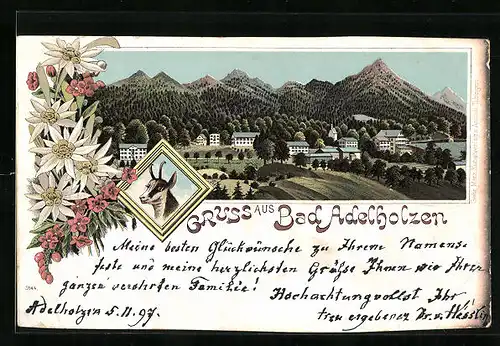 GRUSS AUS Bad Adelholzen
Meine besten Glückwünsche zu Ihrem Namens-
feste und meine herzlichsten Grüße Ihnen wie Ihrer
ganzen verehrten Familie! Hochachtungvollst Ihr
Adelholzen 5.11.97. treu ergebener Dr. v. Hessling
5144.